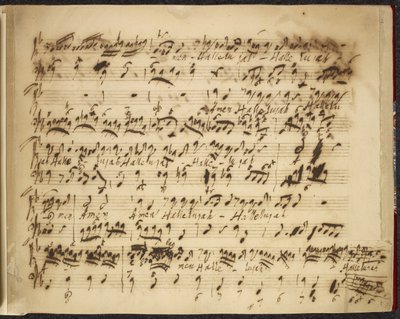 men - Hallelujah - Hallelujah
Amen Hallelujah - Hallelu
jah Halle - lujah Hallelujah - Halle - lujah
Amen Amen Hallelujah - Hallelujah
men Halle - lujah - Hallelujah